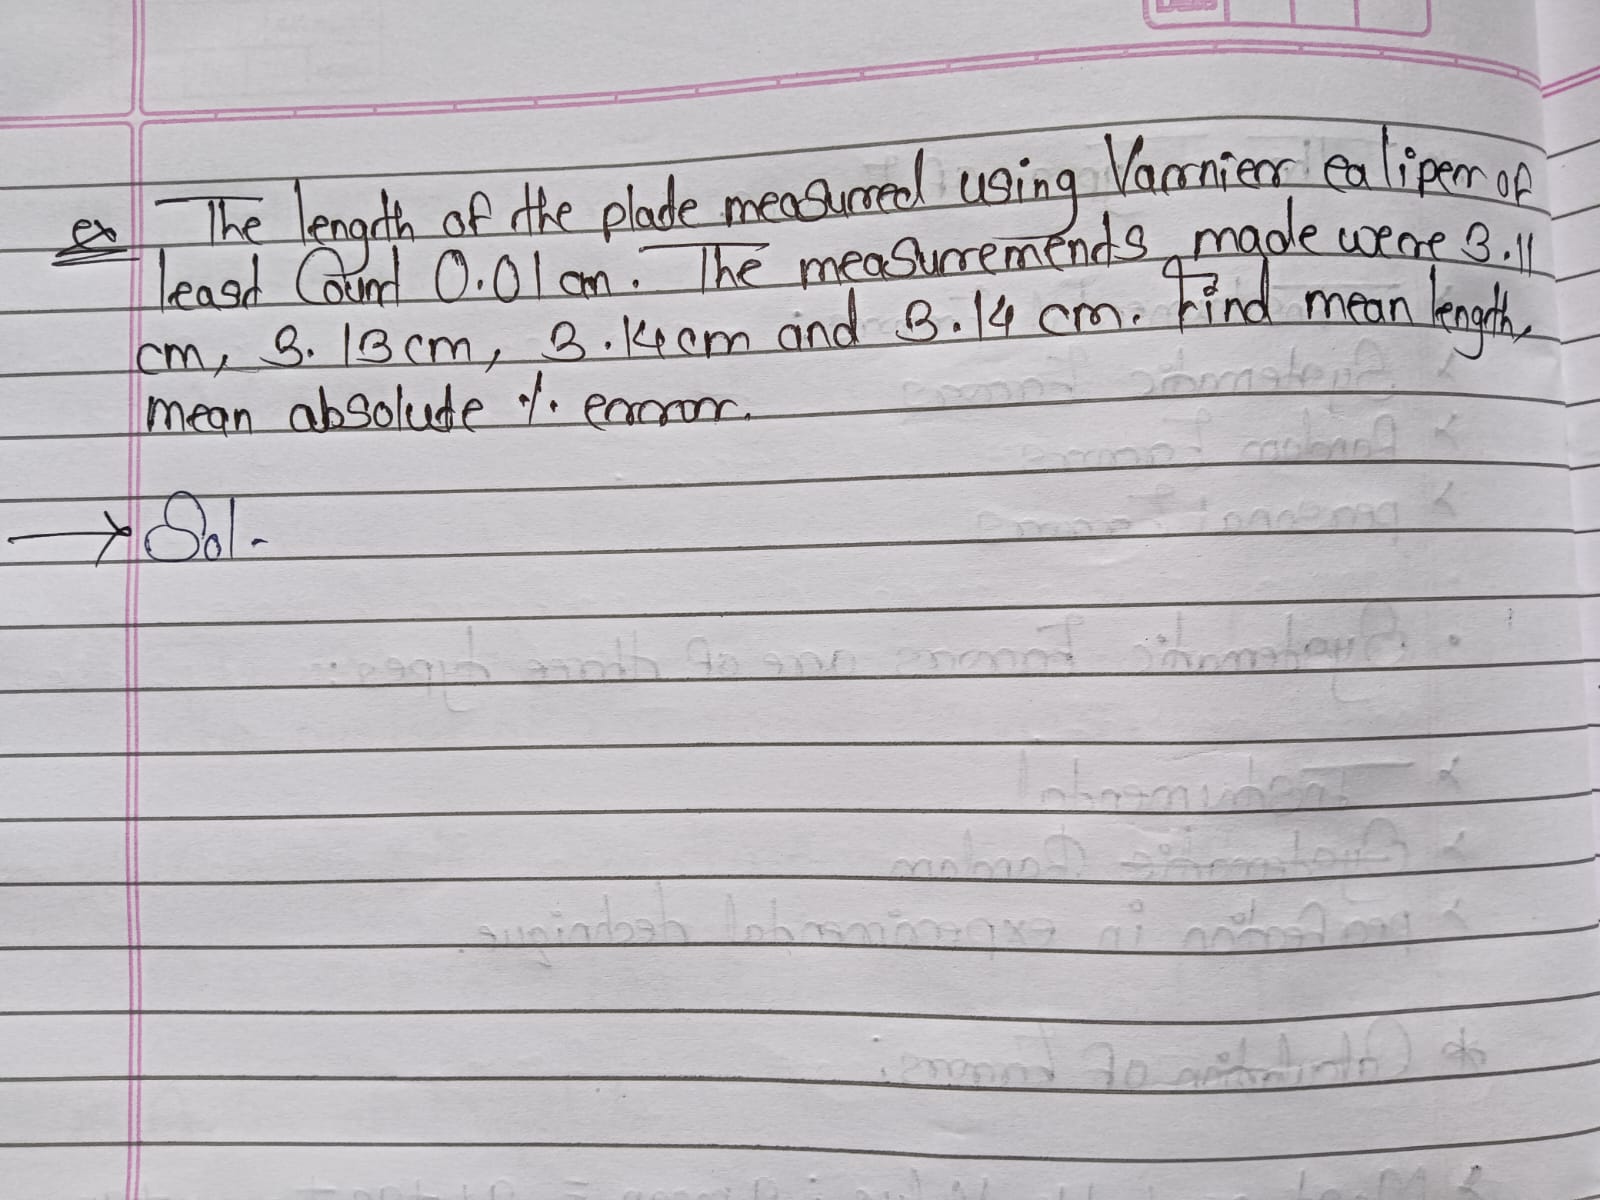 ex The length of the plade measurred using Varnier caliper of
leasd Count 0.01 cm. The measurremends made were 3.11
cm, 3.13 cm, 3.14 cm and 3.14 cm. Find mean length,
mean absolute % error.
→ Sol -